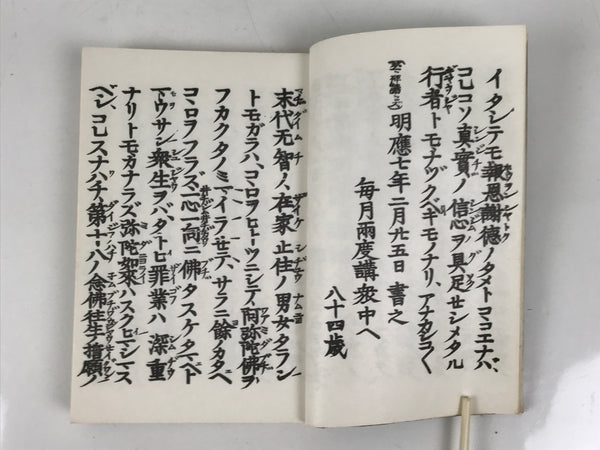 イタシテモ報恩謝徳ノタメトココエナバ、
コレコソ真實ノ信心ヲ具足セシメタル
行者トモナヅクベキモノナリ、アナカシコ〱
明應七年二月廿五日書之
毎月兩度講衆中ヘ
八十四歳
末代无智ノ、在家止住ノ男女タラン
トモガラハ、コヽロヲヒトツニシテ、阿弥陀佛ヲ
フカクタノミマイラセテ、サラニ餘ノカタヘ
コヽロヲフラズ、一心一向ニ佛タスケタマヘト
マウサン衆生ヲバ、タトヒ罪業ハ深重
ナリトモ、カナラズ弥陀如来ハスクヒマシマス
ベシ、コレスナハチ第十八ノ念佛往生ノ誓願ノ